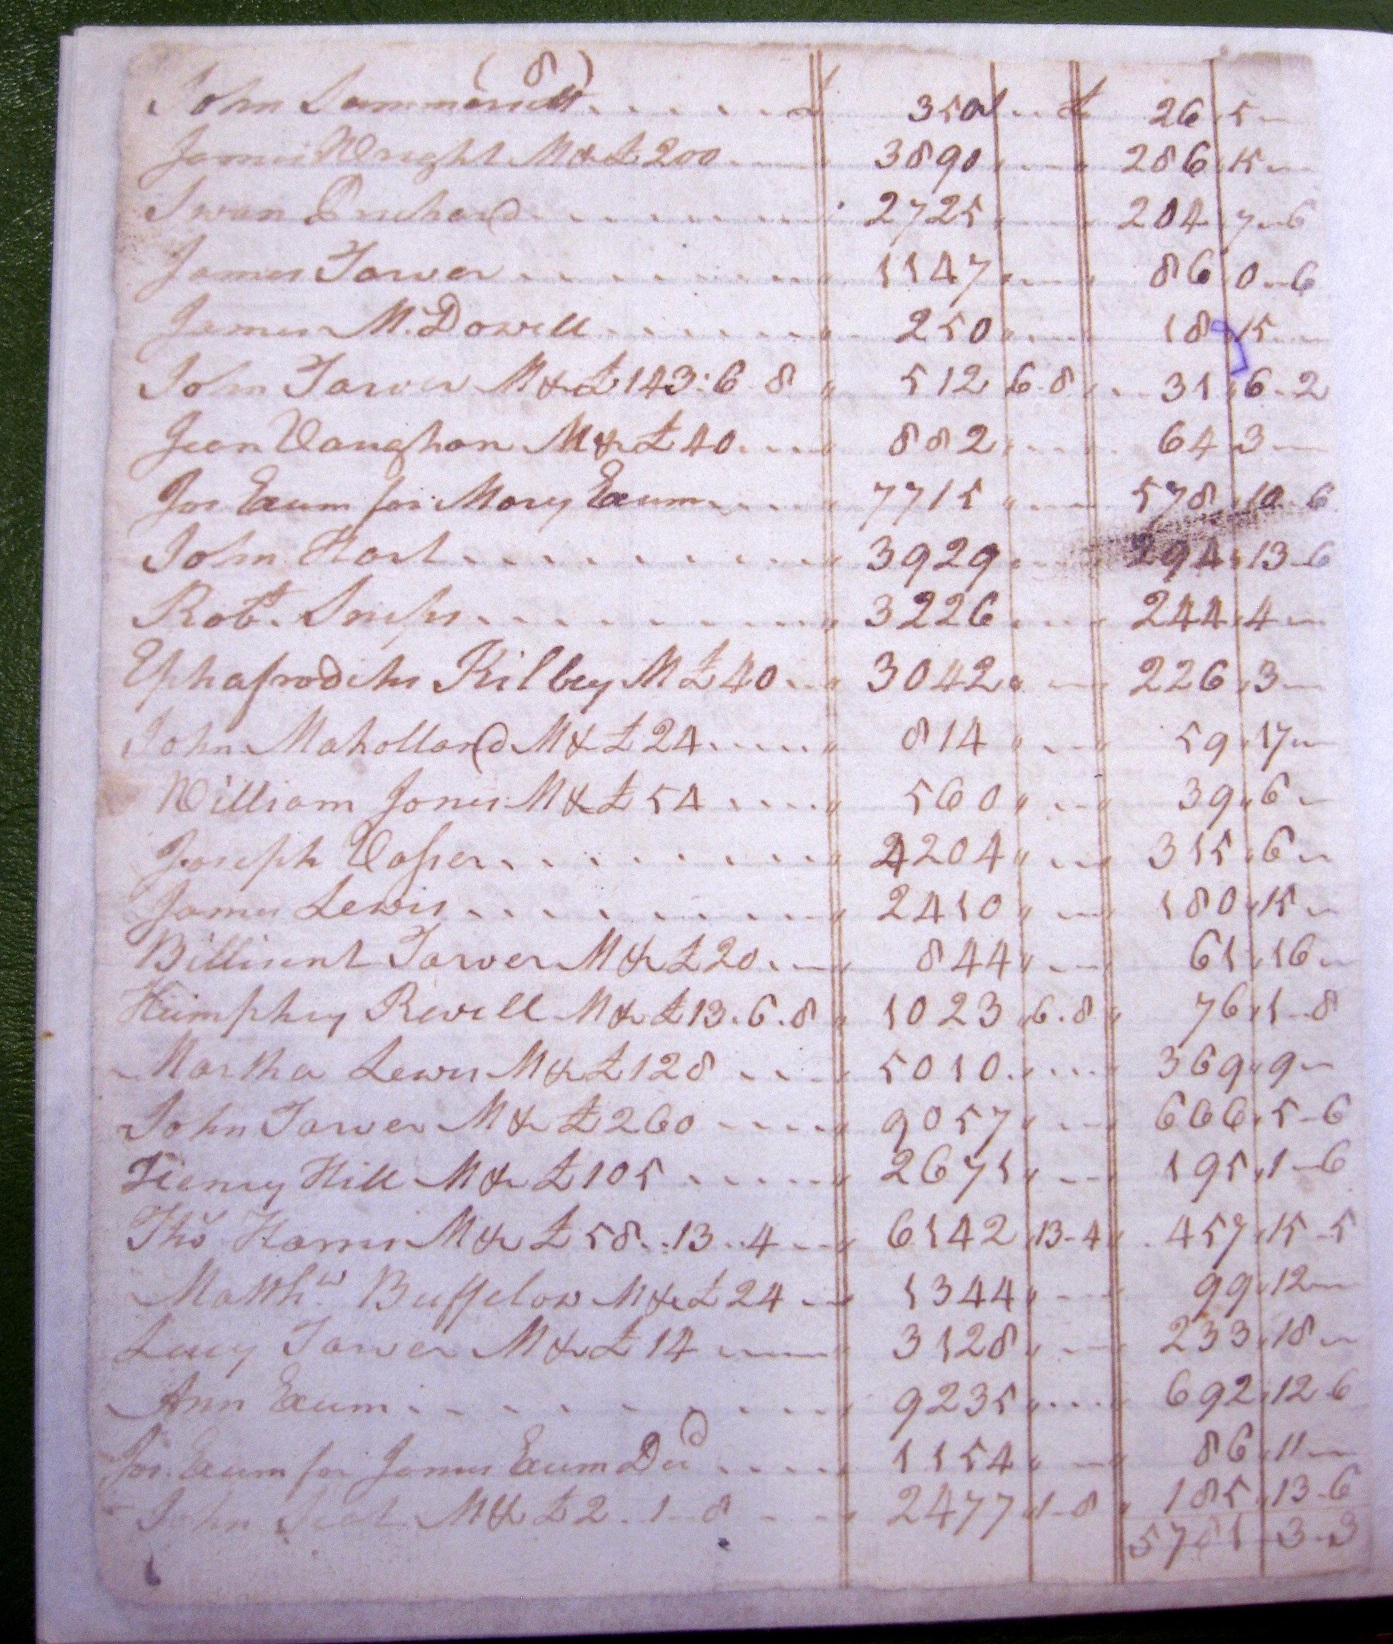 ( 8 )
John Summerell £ 350 £ 26 5
James Wright M & £ 200 3890 286 15
Swan Prichard 2725 204 7 6
James Tarver 1147 86 0 6
James McDowell 250 18 15
John Tarver M & £ 143:6 8 512 6 8 31 6 2
Jean Vaughan M & £ 40 882 64 3
Jos Exum for Mary Exum 7715 578 10 6
John Hart 3929 294 13 6
Robt. 3226 244 4
Ephafroditus Kilbey M £ 40 3042 226 3
John Maholland M & £ 24 814 59 17
William Jones M & £ 54 560 39 6
Joseph Vasser 4204 315 6
James Lewis 2410 180 15
Billisent Tarver M & £ 20 844 61 16
Humphry Revell M & £ 13.6.8 1023 6.8 76 1 8
Martha Lewis M & £ 128 5010 369 9
John Tarver M & £ 260 9057 666 5 6
Henry Hill M & £ 105 2671 195 1 6
Thos Harris M & £ 58..13..4 6142 13 4 457 15 5
Matthw Buffelow M & £ 24 1344 99 12
Lucy Tarver M & £ 14 3128 233 18
Ann Exum 9235 692 12 6
Jos. Exum for James Exum Decd 1154 86 11
John M & £ 2.1 8 2477 1 8 185 13 6
5781 3 3